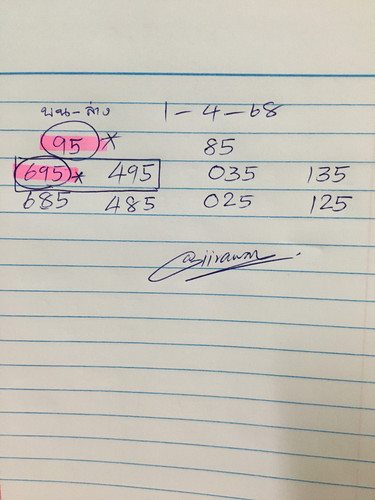 บน-ล่าง 1-4-68
95* 85
695* 495 035 135
685 485 025 125